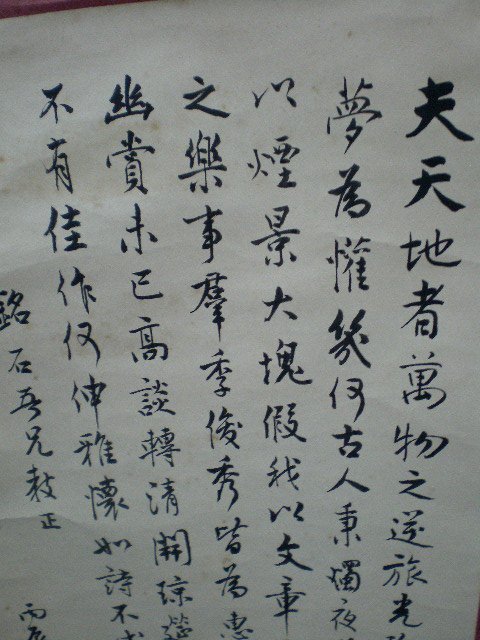 夫天地者萬物之逆旅光
夢為懽幾何古人秉燭夜
以煙景大塊假我以文章
之樂事群季俊秀皆為惠
幽賞未已高談轉清開瓊筵
不有佳作何伸雅懷如詩不成
銘石吾兄教正
丙辰